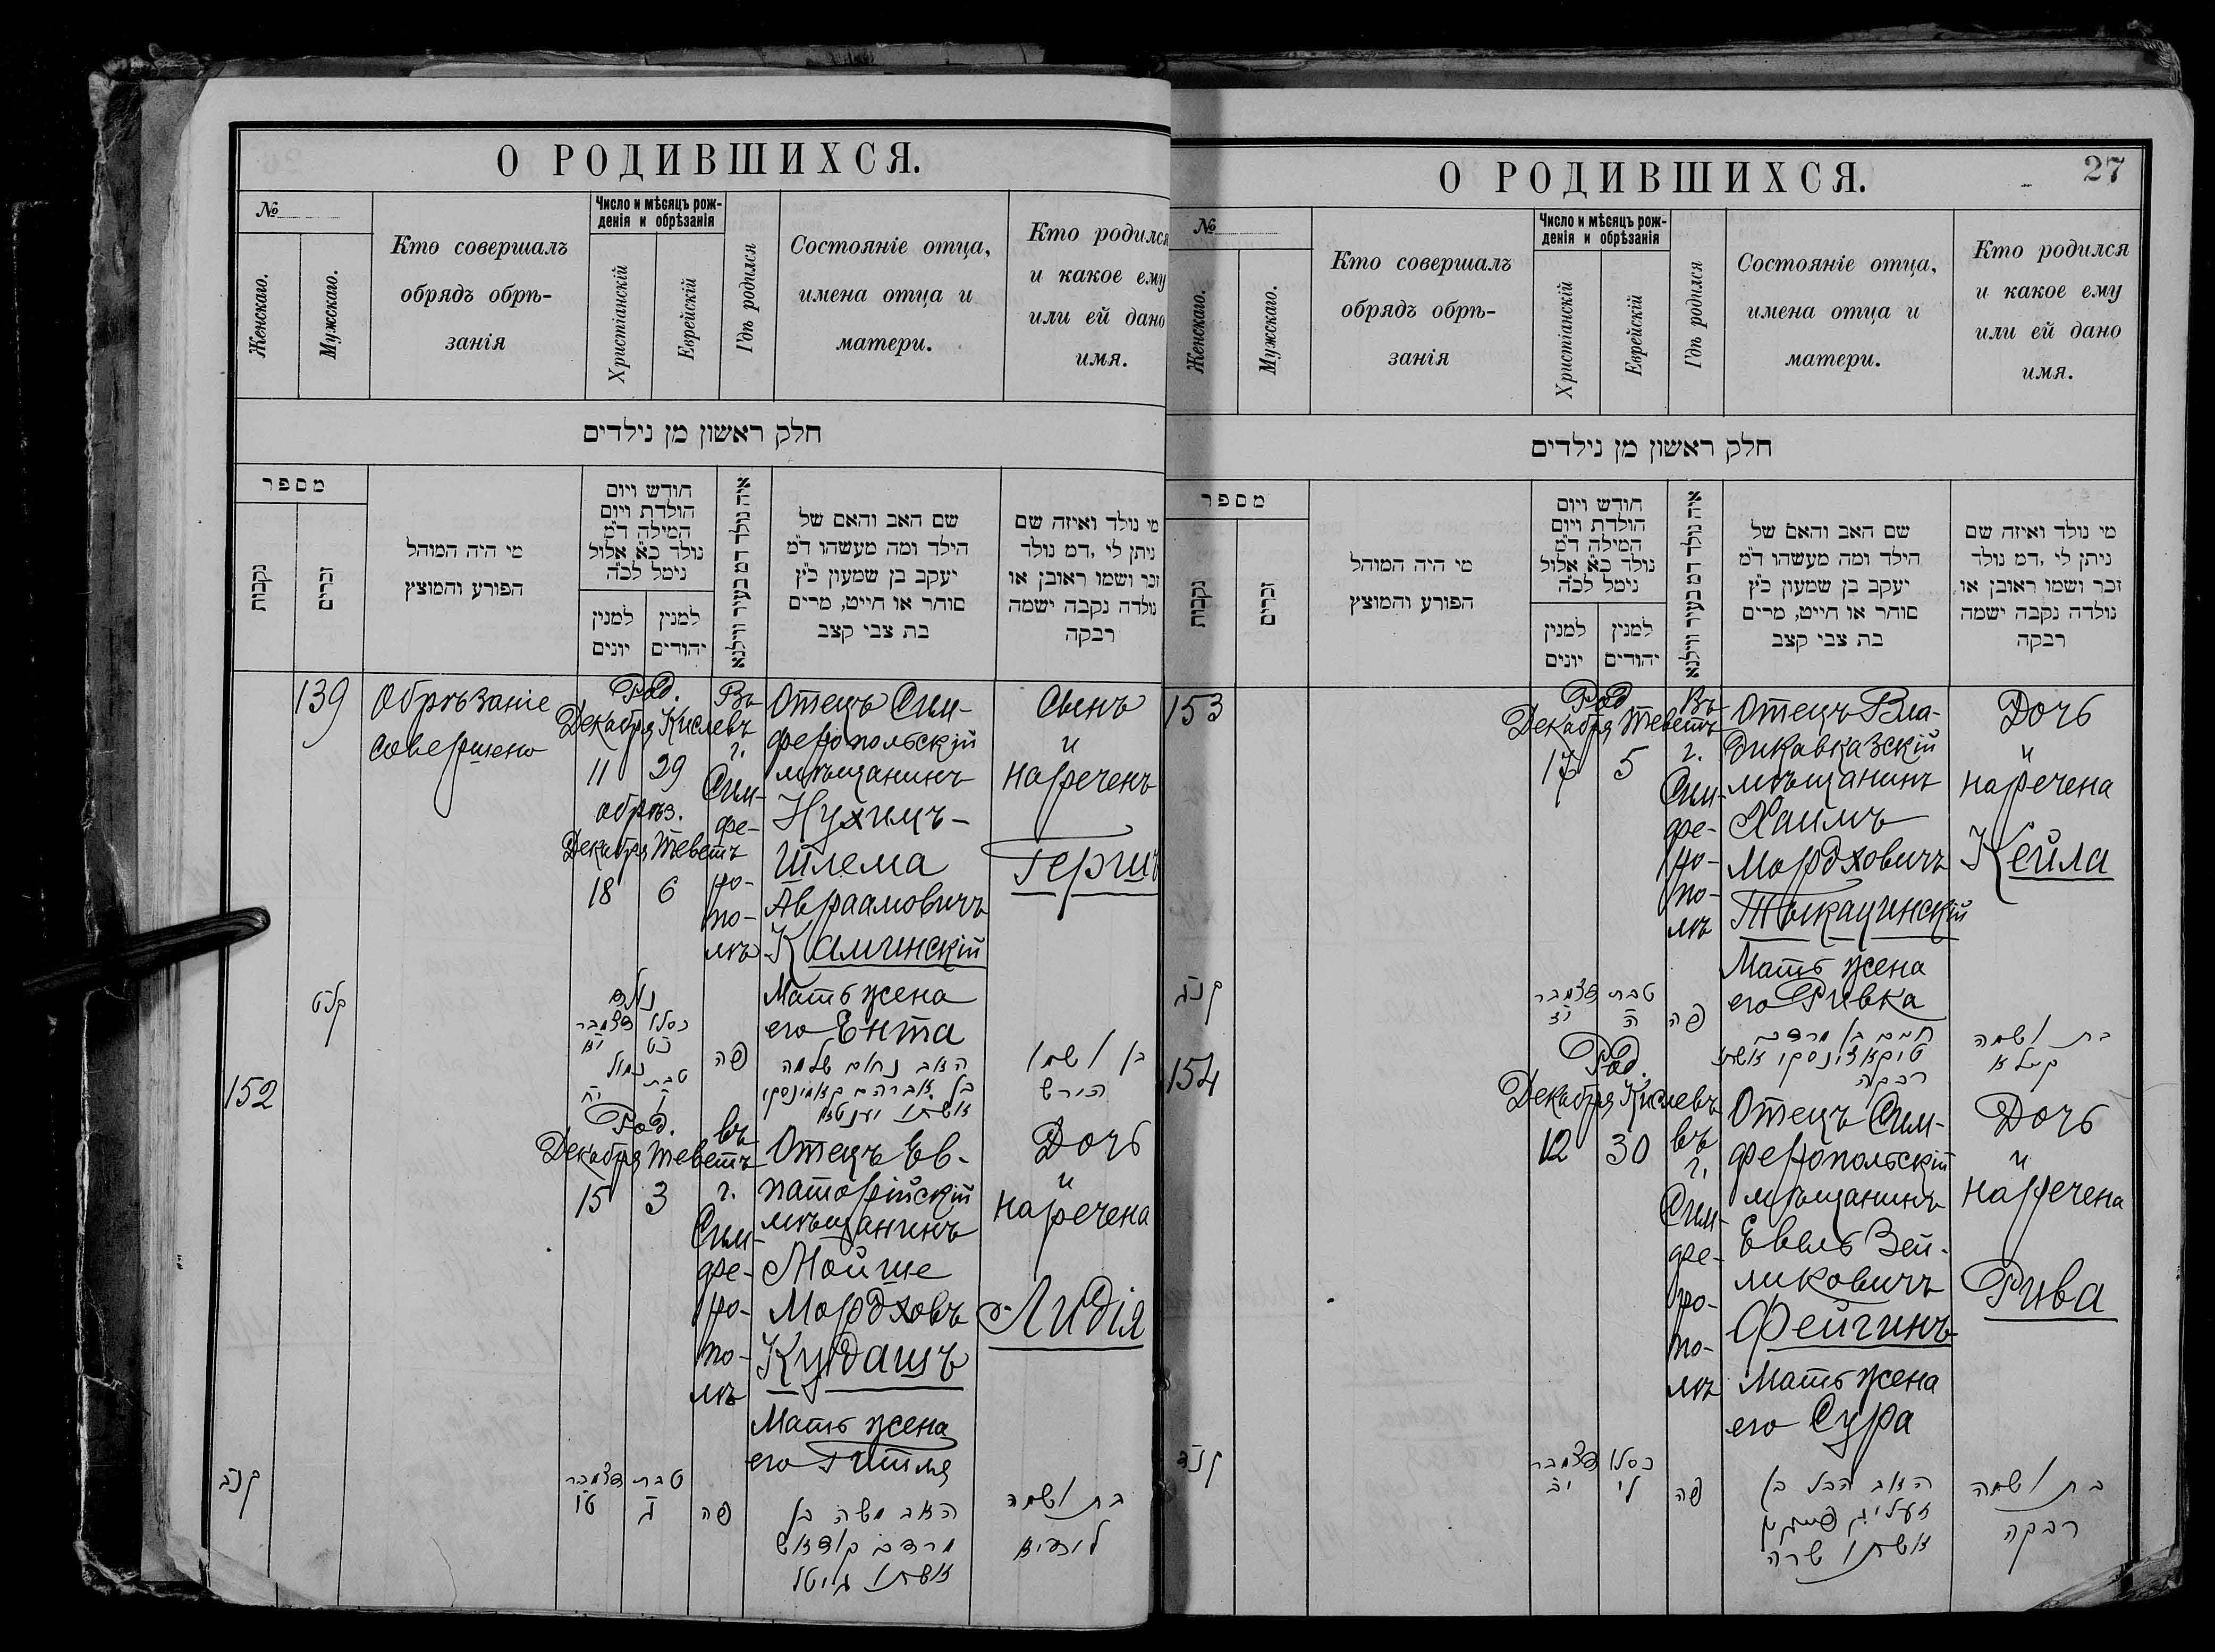 О РОДИВШИХСЯ.
№
Женскаго.
Мужскаго.
Кто совершалъ
обрядъ обрѣ-
занія
Число и мѣсяцъ рож-
денія и обрѣзанія
Христіанскій
Еврейскій
Гдѣ родился
Состояніе отца,
имена отца и
матери.
Кто родился
и какое ему
или ей дано
имя.
חלק ראשון מן נילדים
מספר
נקבות
זכרים
מי היה המוהל
הפורע והמוצץ
חודש ויום
הולדת ויום
המילה ד"מ
נולד כ"א אלול
נימל לכ"ה
למנין
יונים
למנין
יהודים
איה נולד דמ בעיר ווילנא
שם האב והאם של
הילד ומה מעשהו ד"מ
יעקב בן שמעון כ"ץ
סוחר או חייט, מרים
בת צבי קצב
מי נולד ואיזה שם
ניתן לי ,דמ נולד
זכר ושמו ראובן או
נולדה נקבה ישמה
רבקה
139
Обрѣзаніе
совершено
Род.
Декабря Кислевъ
11 29
обрѣз.
Декабря Теветъ
18 6
Въ
г.
Сим-
фе-
ро-
по-
лѣ
Отецъ Сим-
феропольскій
мѣщанинъ
Нухимъ-
Шлема
Авраамовичъ
Каминскій
Мать жена
его Ента
Сынъ
и
нареченъ
Гершъ
קלט
נולד
כסלו דצמבר
כט יא
נמול
טבת
ו יח
פה
האב נחום שלמה
בן אברהם קאמינסקי
אשתו יענטא
בן ושמו
הירש
152
Род.
Декабря Теветъ
15 3
въ
г.
Сим-
фе-
ро-
по-
лѣ
Отецъ Ев-
паторійскій
мѣщанинъ
Мойше
Мордховъ
Кудашъ
Мать жена
его Гитля
Дочь
и
наречена
Лидія
קנב
טבת דצמבר
ג טו
פה
האב משה בן
מרדכי קודאש
אשתו גיטל
בת ושמה
לידיא
О РОДИВШИХСЯ.
27
№
Женскаго.
Мужскаго.
Кто совершалъ
обрядъ обрѣ-
занія
Число и мѣсяцъ рож-
денія и обрѣзанія
Христіанскій
Еврейскій
Гдѣ родился
Состояніе отца,
имена отца и
матери.
Кто родился
и какое ему
или ей дано
имя.
חלק ראשון מן נילדים
מספר
נקבות
זכרים
מי היה המוהל
הפורע והמוצץ
חודש ויום
הולדת ויום
המילה ד"מ
נולד כ"א אלול
נימל לכ"ה
למנין
יונים
למנין
יהודים
איה נולד דמ בעיר ווילנא
שם האב והאם של
הילד ומה מעשהו ד"מ
יעקב בן שמעון כ"ץ
סוחר או חייט, מרים
בת צבי קצב
מי נולד ואיזה שם
ניתן לי ,דמ נולד
זכר ושמו ראובן או
נולדה נקבה ישמה
רבקה
153
Род
Декабря Теветъ
17 5
Въ
г.
Сим-
фе-
ро-
по-
лѣ
Отецъ Вла-
дикавказскій
мѣщанинъ
Хаимъ
Мордховичъ
Тыкацинскій
Мать жена
его Ривка
Дочь
и
наречена
Кейла
קנג
טבת דצמבר
ה יז
פה
חיים בן מרדכי
טיקאצינסקי אשתו
רבקה
בת ושמה
קיילא
154
Род.
Декабря Кислевъ
12 30
въ
г.
Сим-
фе-
ро-
по-
лѣ
Отецъ Сим-
феропольскій
мѣщанинъ
Евель Зей-
ликовичъ
Фейгинъ
Мать жена
его Сура
Дочь
и
наречена
Рива
קנד
כסלו דצמבר
ל יב
פה
האב העבל בן
זעליג פייגין
אשתו שרה
בת ושמה
רבקה